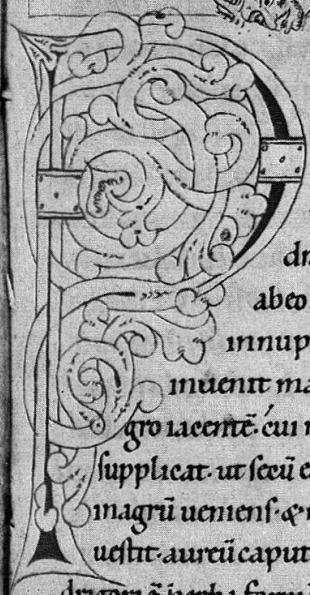 P
dr
abeo
innup
inuenit ma
gro iacentẽ. cui
supplicat. ut secũ e
magrũ ueniens. &
uestit. aureũ caput